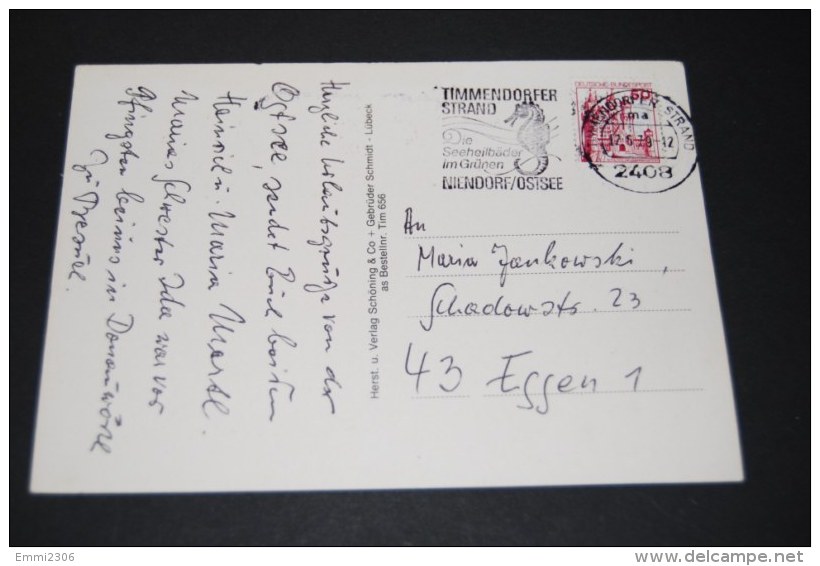 Herzliche Urlaubsgrüße von der
Ostsee, sendet Euch beiden
Heinrich u. Maria
Meine Schwester Ida war vor
Pfingsten bei uns in Donauwörth
zu
Herst. u. Verlag Schöning & Co + Gebrüder Schmidt - Lübeck
as Bestellnr. Tim 656
TIMMENDORFER
STRAND
Die
Seeheilbäder
im Grünen
NIENDORF/OSTSEE
DEUTSCHE BUNDESPOST
STRAND
ma
2408
An
Maria Jankowski,
Schadowstr. 23
43 Essen 1
Emmi2306
delcampe.net